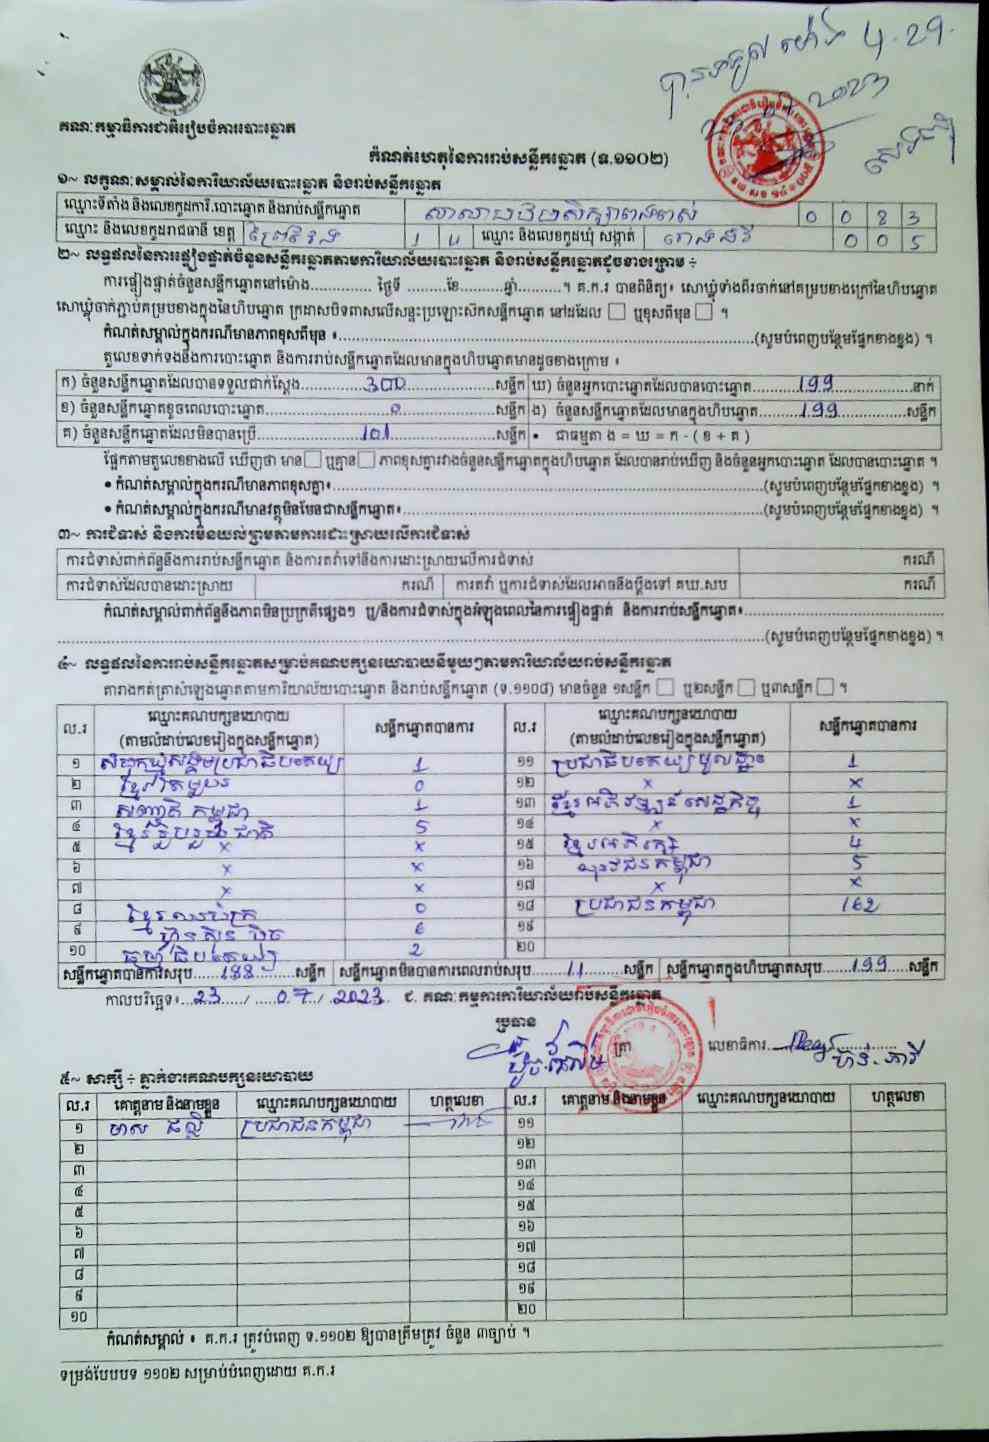 បានទទួល ម៉ោង 4.29.
គណៈកម្មាធិការជាតិរៀបចំការបោះឆ្នោត
កំណត់ហេតុនៃការរាប់សន្លឹកឆ្នោត (ទ.១១០២)
១~ លក្ខណៈសម្គាល់នៃការិយាល័យបោះឆ្នោត និងរាប់សន្លឹកឆ្នោត
ឈ្មោះទីតាំង និងលេខកូដការិ.បោះឆ្នោត និងរាប់សន្លឹកឆ្នោត 0 0 8 3
ឈ្មោះ និងលេខកូដរាជធានី ខេត្ត ព្រៃវែង 1 4 ឈ្មោះ និងលេខកូដឃុំ សង្កាត់ 0 0 5
២~ លទ្ធផលនៃការផ្ទៀងផ្ទាត់ចំនួនសន្លឹកឆ្នោតតាមការិយាល័យបោះឆ្នោត និងរាប់សន្លឹកឆ្នោតដូចខាងក្រោម ÷
ការផ្ទៀងផ្ទាត់ចំនួនសន្លឹកឆ្នោតនៅម៉ោង.............. ថ្ងៃទី .........ខែ..........ឆ្នាំ..........។ គ.ក.រ បានពិនិត្យ៖ សោឃ្លុំទាំងពីរចាក់នៅគម្របខាងក្រៅនៃហិបឆ្នោត
សោឃ្លុំចាក់ភ្ជាប់គម្របខាងក្នុងនៃហិបឆ្នោត ក្រដាសបិទពាសលើសន្ទះប្រឡោះសិកសន្លឹកឆ្នោត នៅដដែល □ ឬខុសពីមុន □ ។
កំណត់សម្គាល់ក្នុងករណីមានភាពខុសពីមុន ៖..........(សូមបំពេញបន្ថែមផ្នែកខាងខ្នង) ។
តួលេខទាក់ទងនឹងការបោះឆ្នោត និងការរាប់សន្លឹកឆ្នោតដែលមានក្នុងហិបឆ្នោតមានដូចខាងក្រោម ៖
ក) ចំនួនសន្លឹកឆ្នោតដែលបានទទួលជាក់ស្តែង..........300..........សន្លឹក ឃ) ចំនួនអ្នកបោះឆ្នោតដែលបានបោះឆ្នោត..........199..........នាក់
ខ) ចំនួនសន្លឹកឆ្នោតខូចពេលបោះឆ្នោត..........0..........សន្លឹក ង) ចំនួនសន្លឹកឆ្នោតដែលមានក្នុងហិបឆ្នោត..........199..........សន្លឹក
គ) ចំនួនសន្លឹកឆ្នោតដែលមិនបានប្រើ..........101..........សន្លឹក • ជាធម្មតា ង = ឃ = ក - ( ខ + គ )
ផ្អែកតាមតួលេខខាងលើ ឃើញថា មាន □ ឬគ្មាន □ ភាពខុសគ្នារវាងចំនួនសន្លឹកឆ្នោតក្នុងហិបឆ្នោត ដែលបានរាប់ឃើញ និងចំនួនអ្នកបោះឆ្នោត ដែលបានបោះឆ្នោត ។
• កំណត់សម្គាល់ក្នុងករណីមានភាពខុសគ្នា៖..........(សូមបំពេញបន្ថែមផ្នែកខាងខ្នង) ។
• កំណត់សម្គាល់ក្នុងករណីមានវត្ថុមិនមែនជាសន្លឹកឆ្នោត៖..........(សូមបំពេញបន្ថែមផ្នែកខាងខ្នង) ។
៣~ ការជំទាស់ និងការមិនយល់ព្រមតាមការដោះស្រាយលើការជំទាស់
ការជំទាស់ពាក់ព័ន្ធនឹងការរាប់សន្លឹកឆ្នោត និងការតវ៉ាទៅនឹងការដោះស្រាយលើការជំទាស់ ករណី
ការជំទាស់ដែលបានដោះស្រាយ ករណី ការតវ៉ា ឬការជំទាស់ដែលអាចនឹងប្តឹងទៅ គឃ.សប ករណី
កំណត់សម្គាល់ពាក់ព័ន្ធនឹងភាពមិនប្រក្រតីផ្សេងៗ ឬ/និងការជំទាស់ក្នុងអំឡុងពេលនៃការផ្ទៀងផ្ទាត់ និងការរាប់សន្លឹកឆ្នោត៖..........
..........(សូមបំពេញបន្ថែមផ្នែកខាងខ្នង) ។
៤~ លទ្ធផលនៃការរាប់សន្លឹកឆ្នោតសម្រាប់គណបក្សនយោបាយនីមួយៗតាមការិយាល័យរាប់សន្លឹកឆ្នោត
តារាងកត់ត្រាសំឡេងឆ្នោតតាមការិយាល័យបោះឆ្នោត និងរាប់សន្លឹកឆ្នោត (ទ.១១០៨) មានចំនួន ១សន្លឹក □ ឬ២សន្លឹក □ ឬ៣សន្លឹក □ ។
ល.រ ឈ្មោះគណបក្សនយោបាយ (តាមលំដាប់លេខរៀងក្នុងសន្លឹកឆ្នោត) សន្លឹកឆ្នោតបានការ ល.រ ឈ្មោះគណបក្សនយោបាយ (តាមលំដាប់លេខរៀងក្នុងសន្លឹកឆ្នោត) សន្លឹកឆ្នោតបានការ
១ សំបុកឃ្មុំសង្គមប្រជាធិបតេយ្យ 1 ១១ ប្រជាធិបតេយ្យមូលដ្ឋាន 1
២ 0 ១២ x x
៣ សញ្ជាតិ កម្ពុជា 1 ១៣ ខ្មែរអភិវឌ្ឍន៍សេដ្ឋកិច្ច 1
៤ ខ្មែររួបរួមជាតិ 5 ១៤ x x
៥ x x ១៥ ខ្មែរអភិរក្ស 4
៦ x x ១៦ យុវជនកម្ពុជា 5
៧ x x ១៧ x x
៨ 0 ១៨ ប្រជាជនកម្ពុជា 162
៩ ហ្វ៊ុនស៊ិនប៉ិច 6 ១៩
១០ ធម្មាធិបតេយ្យ 2 ២០
សន្លឹកឆ្នោតបានការសរុប.....188.....សន្លឹក សន្លឹកឆ្នោតមិនបានការពេលរាប់សរុប.....11.....សន្លឹក សន្លឹកឆ្នោតក្នុងហិបឆ្នោតសរុប.....199.....សន្លឹក
កាលបរិច្ឆេទ៖...23..../....07.../..2023. ជ. គណៈកម្មការការិយាល័យរាប់សន្លឹកឆ្នោត
ប្រធាន
ត្រា លេខាធិការ..........
៥~ សាក្សី ÷ ភ្នាក់ងារគណបក្សនយោបាយ
ល.រ គោត្តនាម និងនាមខ្លួន ឈ្មោះគណបក្សនយោបាយ ហត្ថលេខា ល.រ គោត្តនាម និងនាមខ្លួន ឈ្មោះគណបក្សនយោបាយ ហត្ថលេខា
១ មាស ផល្លី ប្រជាជនកម្ពុជា ១១
២ ១២
៣ ១៣
៤ ១៤
៥ ១៥
៦ ១៦
៧ ១៧
៨ ១៨
៩ ១៩
១០ ២០
កំណត់សម្គាល់ ៖ គ.ក.រ ត្រូវបំពេញ ទ.១១០២ ឱ្យបានត្រឹមត្រូវ ចំនួន ៣ច្បាប់ ។
ទម្រង់បែបបទ ១១០២ សម្រាប់បំពេញដោយ គ.ក.រ